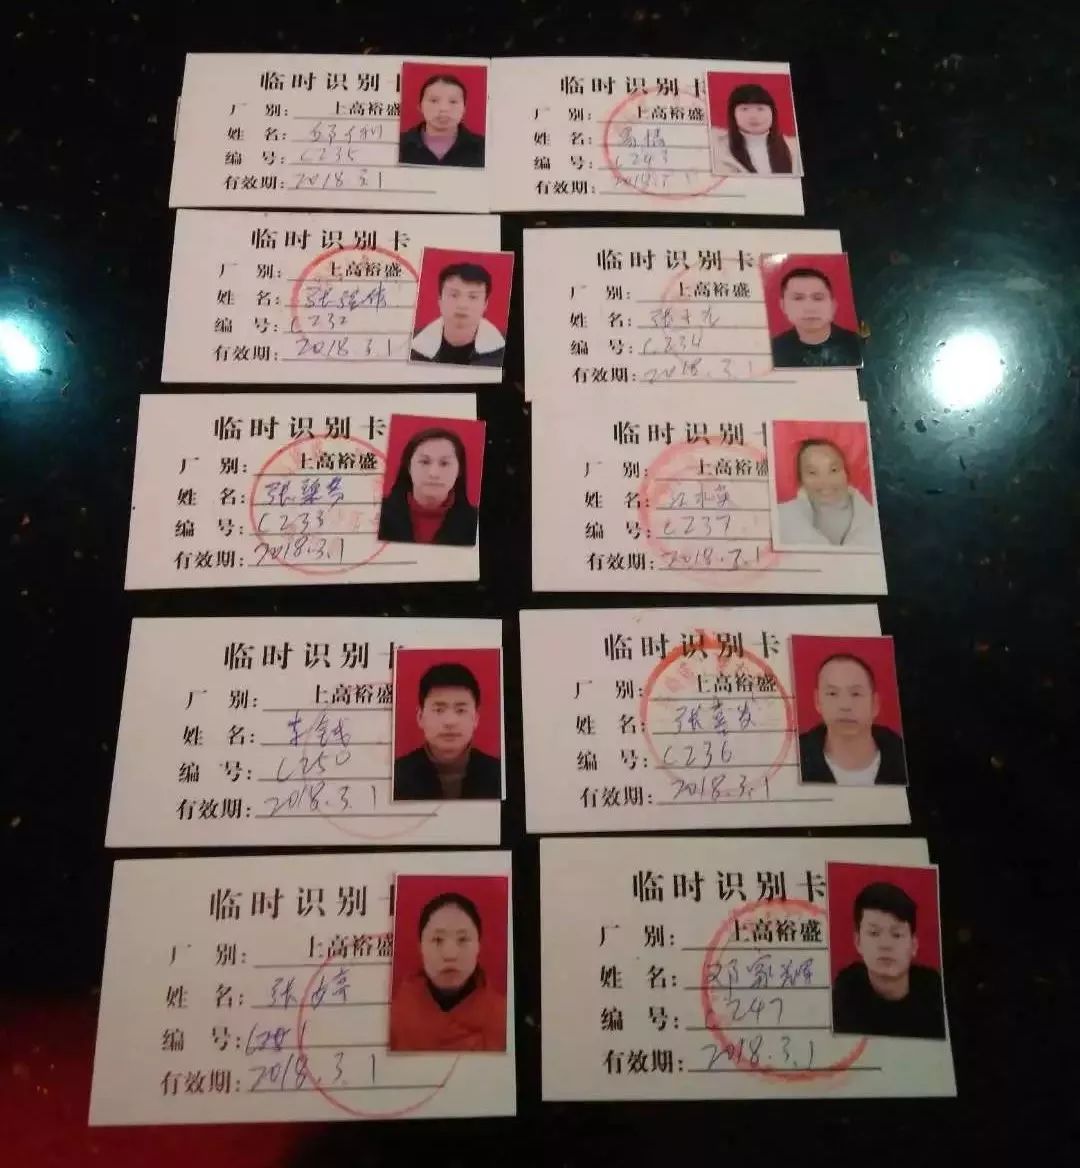 临时识别卡
厂 别: 上高裕盛
姓 名:
编 号: C235
有效期: 2018.3.1
临时识别卡
厂 别: 上高裕盛
姓 名: 易情
编 号: C243
有效期: 2018.3.1
临时识别卡
厂 别: 上高裕盛
姓 名: 张强伟
编 号: C232
有效期: 2018.3.1
临时识别卡
厂 别: 上高裕盛
姓 名: 张
编 号: C234
有效期: 2018.3.1
临时识别卡
厂 别: 上高裕盛
姓 名: 张翠芳
编 号: C233
有效期: 2018.3.1
临时识别
厂 别: 上高裕盛
姓 名: 江水英
编 号: C237
有效期: 2018.3.1
临时识别
厂 别: 上高裕盛
姓 名:
编 号: C250
有效期: 2018.3.1
临时识别卡
厂 别: 上高裕盛
姓 名: 张喜发
编 号: C236
有效期: 2018.3.1
临时识别
厂 别: 上高裕盛
姓 名: 张婷
编 号:
有效期: 2018.3.1
临时识别卡
厂 别: 上高裕盛
姓 名: 邓家辉
编 号: C247
有效期: 2018.3.1